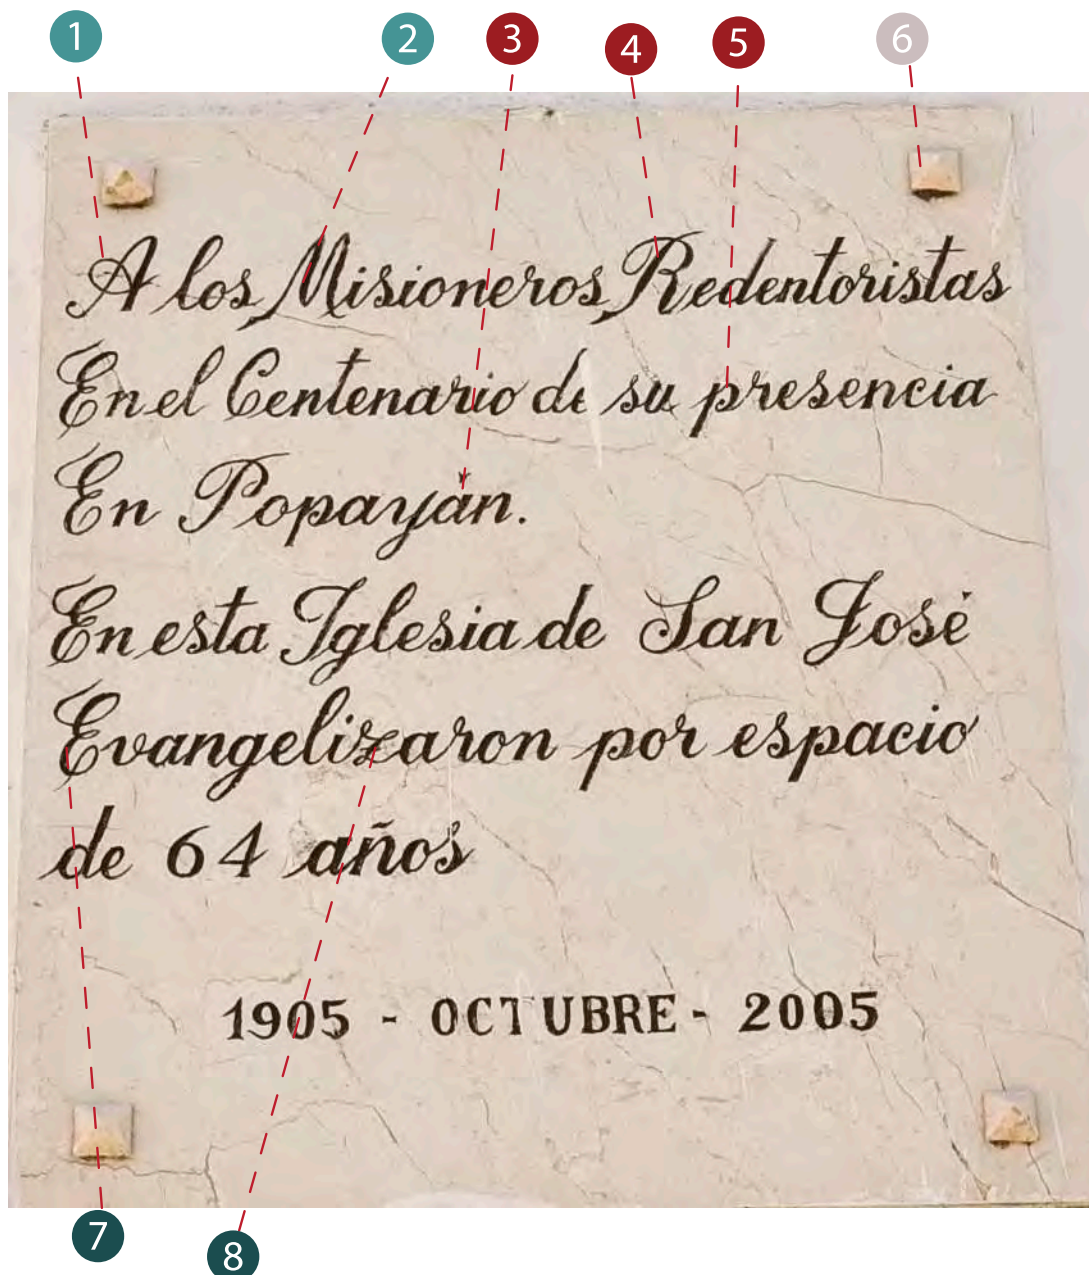 1 2 3 4 5 6
A los Misioneros Redentoristas
En el Centenario de su presencia
En Popayán.
En esta Iglesia de San José
Evangelizaron por espacio
de 64 años
1905 - OCTUBRE - 2005
7 8